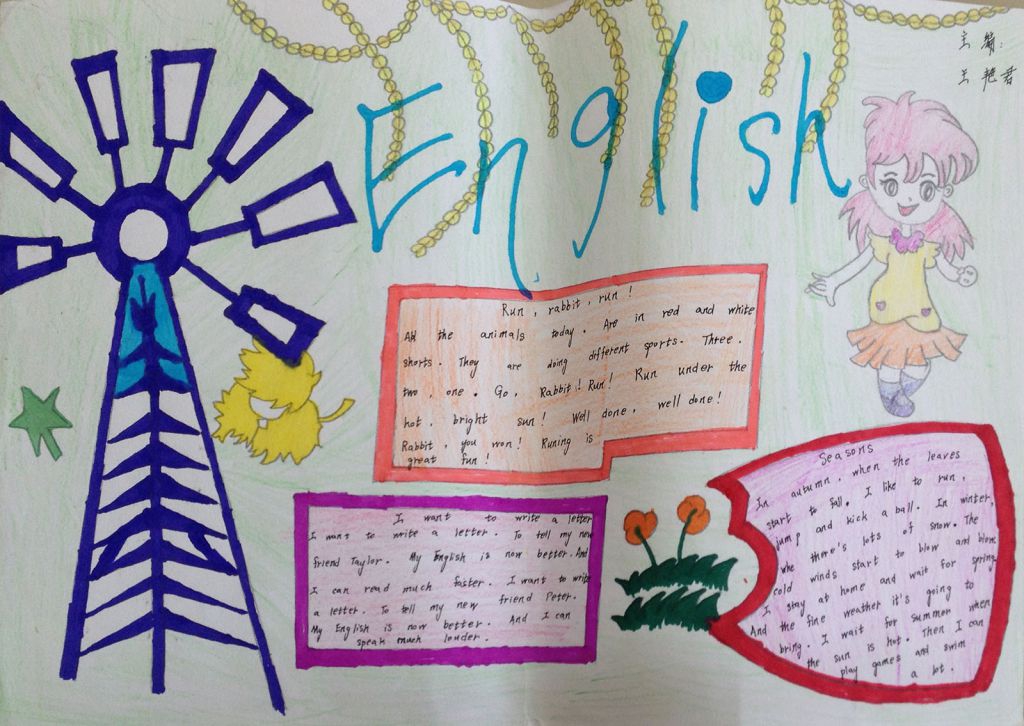 English
主编:
王艳君
Run, rabbit, run!
All the animals today. Are in red and white
shorts. They are doing different sports. Three.
two, one. Go, Rabbit! Run! Run under the
hot, bright sun! Well done, well done!
Rabbit, you won! Runing is
great fun!
I want to write a letter
I want to write a letter. To tell my new
friend Taylor. My English is now better. And
I can read much faster. I want to write
a letter. To tell my new friend Peter.
My English is now better. And I can
speak much louder.
Seasons
In autumn. when the leaves
start to fall. I like to run,
jump and kick a ball. In winter,
whe there's lots of snow. The
cold winds start to blow and blow.
I stay at home and wait for spring
And the fine weather it's going to
bring. I wait for summer when
the sun is hot. Then I can
play games and swim
a lot.